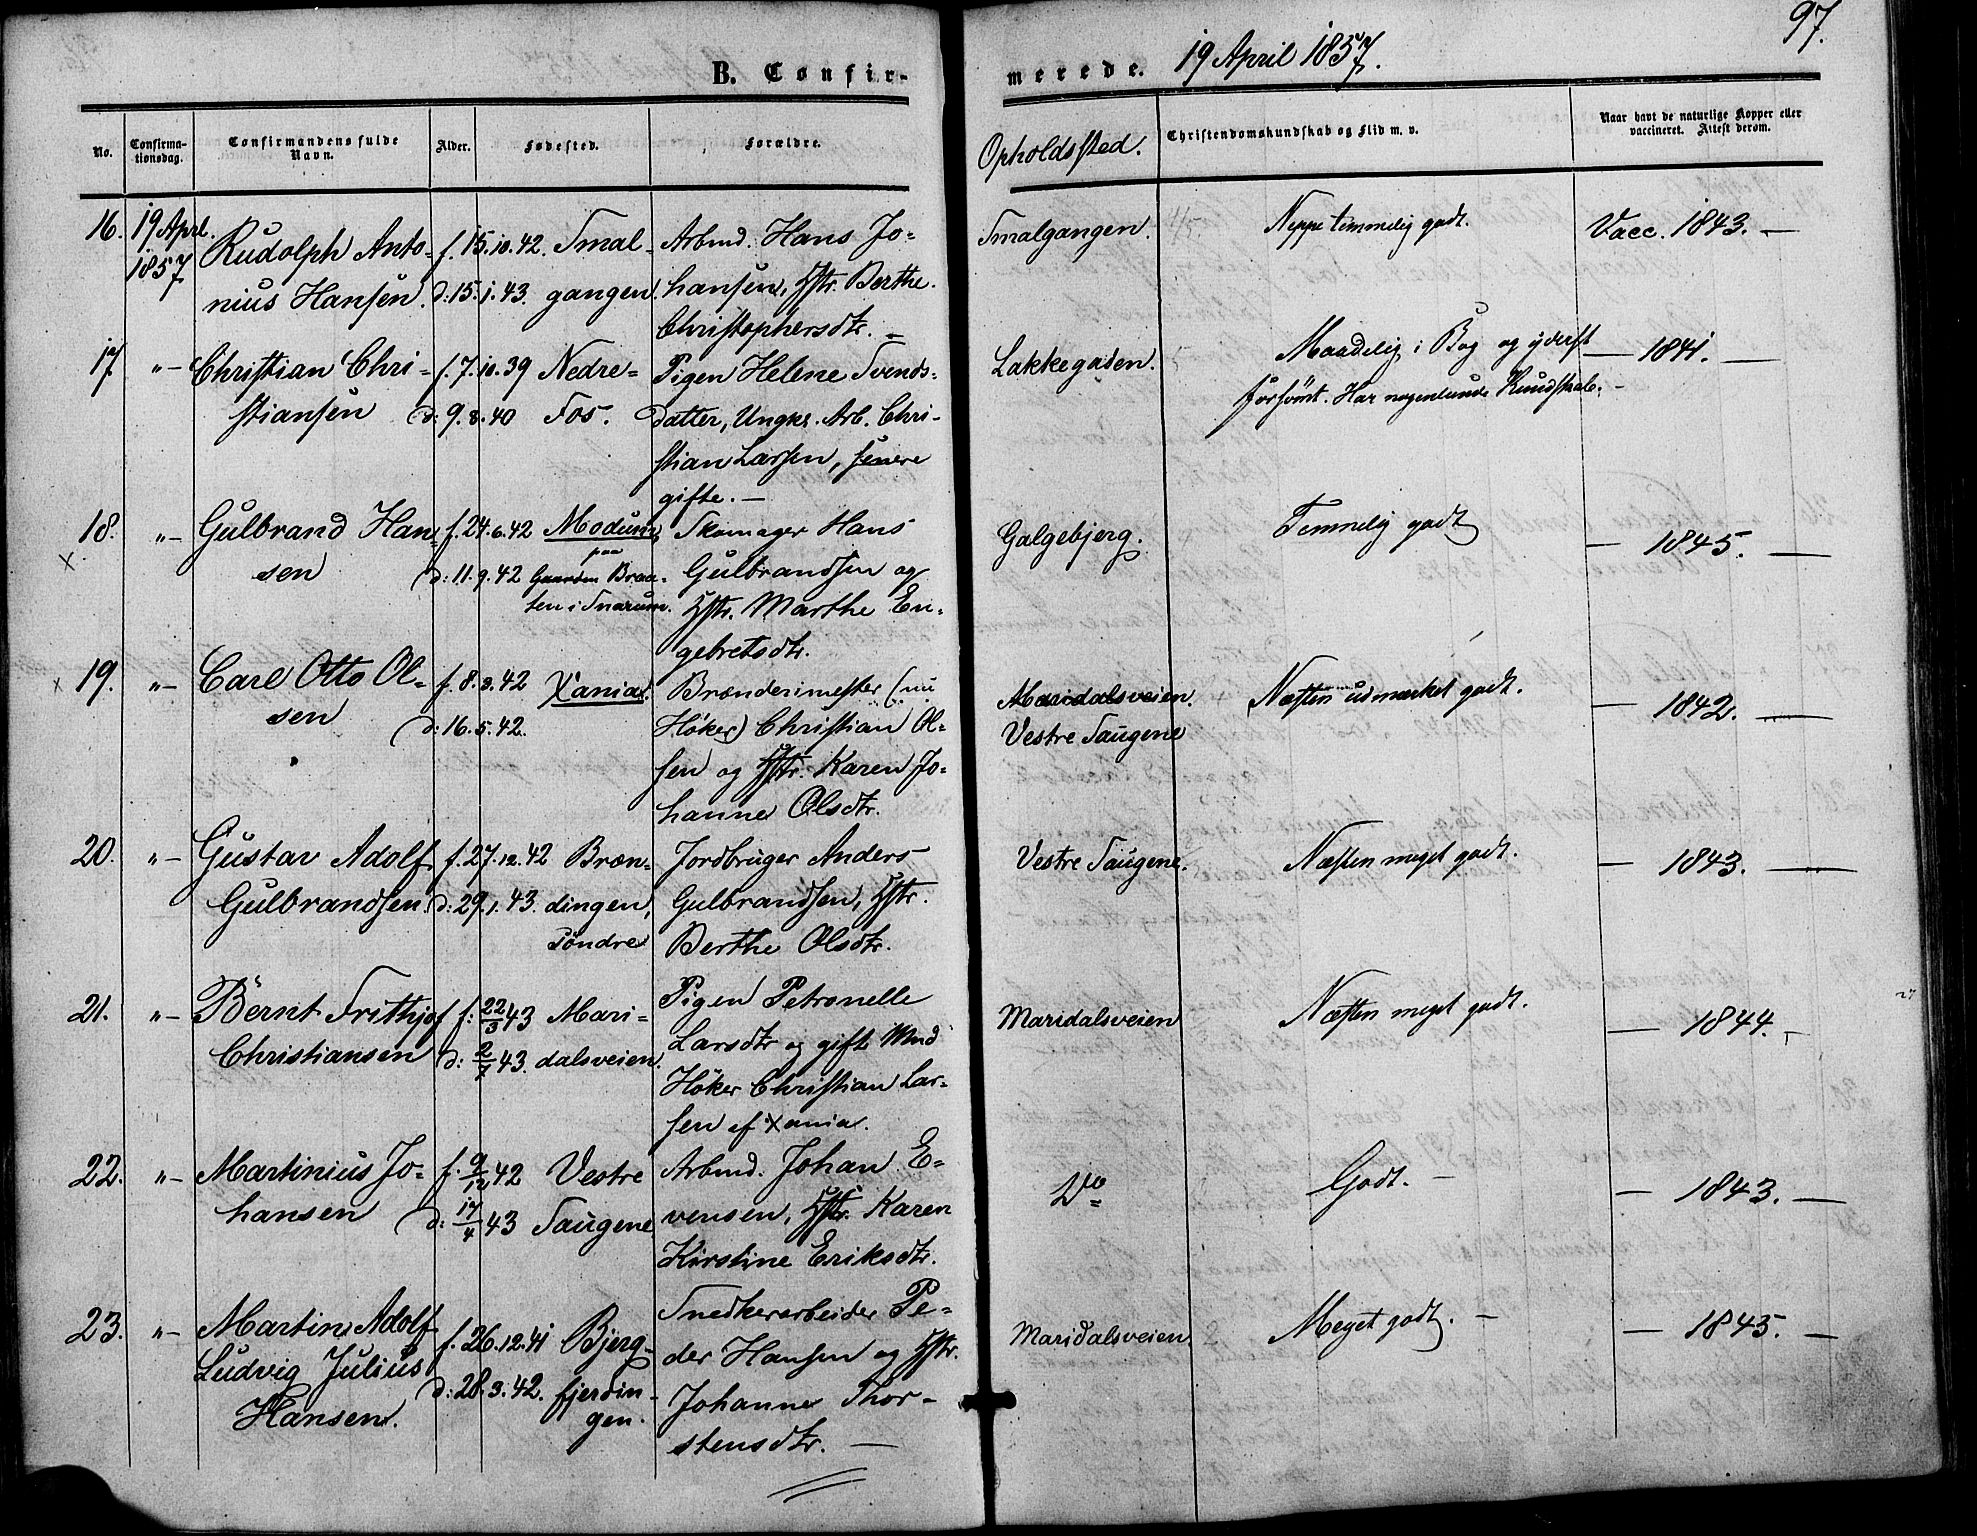 97.
B. Confir-
merede. 19 April 1857.
No.
Confirma-
tionsdag.
Confirmandens fulde
Navn.
Alder.
Fødested.
Forældre.
Opholdssted.
Christendomskundskab og Flid m. v.
Naar havt de naturlige Kopper eller
vaccineret. Attest derom.
16. 19 April 1857 Rudolph Anto-
nius Hansen.
f. 15.10.42.
d: 15.1.43.
Smal-
gangen.
Arbmd. Hans Jo-
hansen, Hstr. Berthe
Christophersdtr. –
Smalgangen.
Neppe temmelig godt.
Vacc. 1843. –
17 "– Christian Chri-
stiansen
f. 7.10.39
d: 9.8.40
Nedre-
Fos.
Pigen Helene Svends-
datter, Ungkr. Arb. Chri-
stian Larsen, senere
gifte. –
Lakkegaden.
Maadelig i Bog og yderst
forsömt. Har nogenlunde Kundskab. –
– 1841. –
18. "– Gulbrand Han-
sen
f. 24.6.42
d: 11.9.42
Modum,
paa
Gaarden Braa-
ten i Snarum.
Skomager Hans
Gulbrandsen og
Hstr. Marthe En-
gebretsdtr.
Galgebjerg.
Temmelig godt
– 1845. –
19. "– Carl Otto Ol-
sen
f. 8.3.42
d: 16.5.42.
Xania.
Brænderimester (nu
Høker) Christian Ol-
sen og Hstr. Karen Jo-
hanne Olsdtr.
Maridalsveien.
Vestre Saugene
Næsten udmærket godt.
– 1842. –
20. "– Gustav Adolf
Gulbrandsen.
f. 27.12.42
d: 29.1.43.
Bræn-
dingen,
söndre
Jordbruger Anders
Gulbrandsen, Hstr.
Berthe Olsdtr.
Vestre Saugene.
Næsten meget godt.
– 1843. –
21. "– Bernt Frithjof
Christiansen
f: 22/3 43
d: 2/7 43.
Mari-
dalsveien.
Pigen Petronelle
Larsdtr og gift Mnd
Höker Christian Lar-
sen af Xania.
Maridalsveien
Næsten meget godt.
– 1844. –
22. "– Martinius Jo-
hansen
f. 9/12 42
d: 17/4 43
Vestre
Saugene
Arbmd. Johan E-
vensen, Hstr. Karen
Kirstine Eriksdtr.
Do
Godt. –
– 1843. –
23. "– Martin Adolf
Ludvig Julius
Hansen.
f. 26.12.41
d: 28.3.42.
Bjerg-
fjerdin-
gen.
Snedkerarbeider Pe-
der Hansen og Hstr.
Johanne Thor-
stensdtr. –
Maridalsveien.
Meget godt. –
– 1845. –